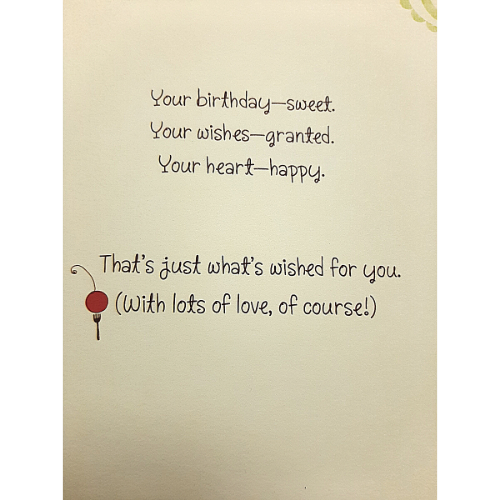 Your birthday—sweet.
Your wishes—granted.
Your heart—happy.
That's just what's wished for you.
(With lots of love, of course!)